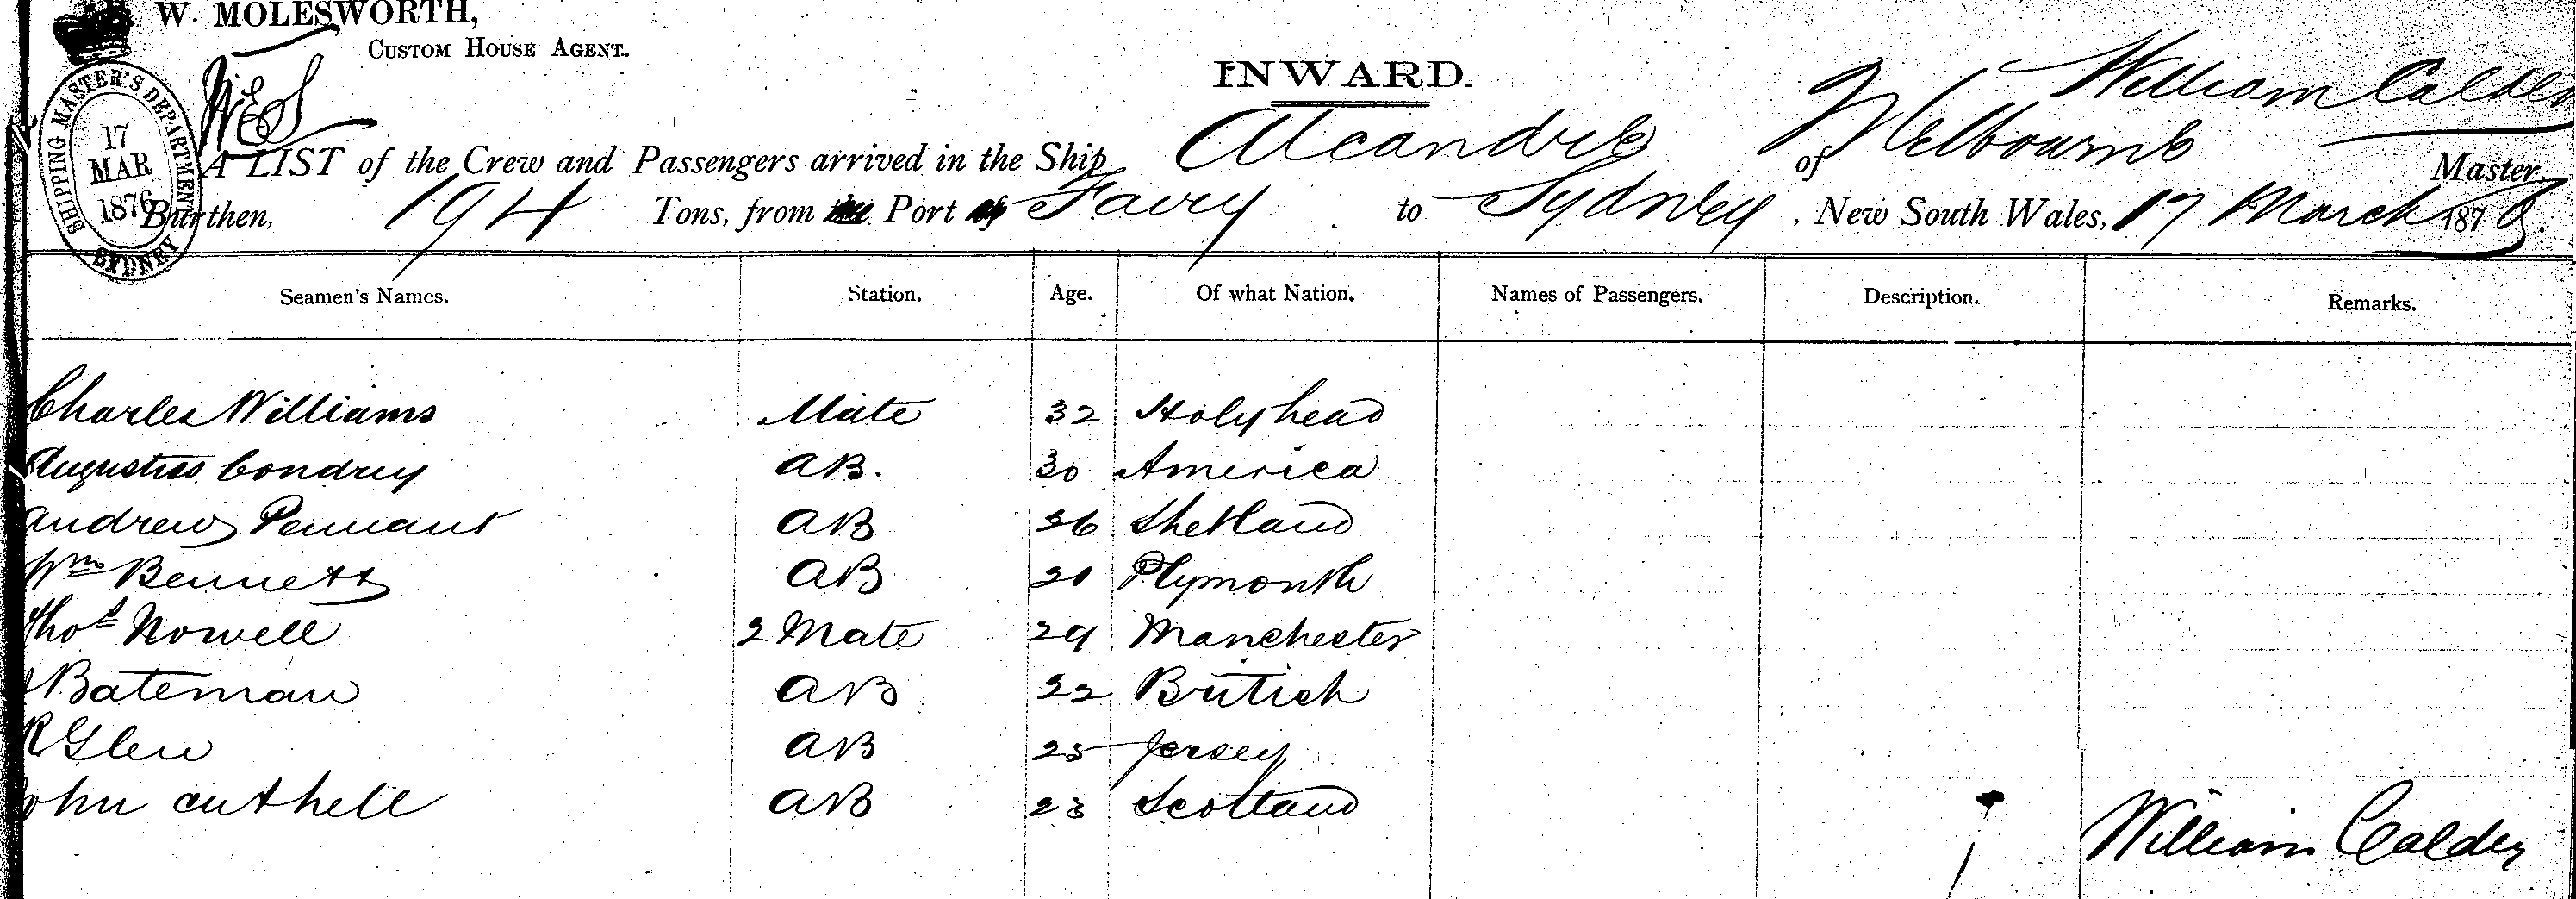 W. MOLESWORTH,
CUSTOM HOUSE AGENT.
INWARD.
SHIPPING MASTER'S DEPARTMENT
17 MAR 1876
SYDNEY
A LIST of the Crew and Passengers arrived in the Ship Alcandre of Melbourne William Calder Master,
Burthen, 194 Tons, from the Port of to Sydney, New South Wales, 17 March 1876.
Seamen's Names. Station. Age. Of what Nation. Names of Passengers. Description. Remarks.
Charles Williams Mate 32 Holyhead
Augustus Condrey AB. 30 America
Andrew Pennant AB 26 Shetland
Wm Bennett AB 20 Plymouth
Thos Nowell 2 Mate 29 Manchester
Bateman AB 22 British
R Glen AB 25 Jersey
John Cuthell AB 23 Scotland
William Calder